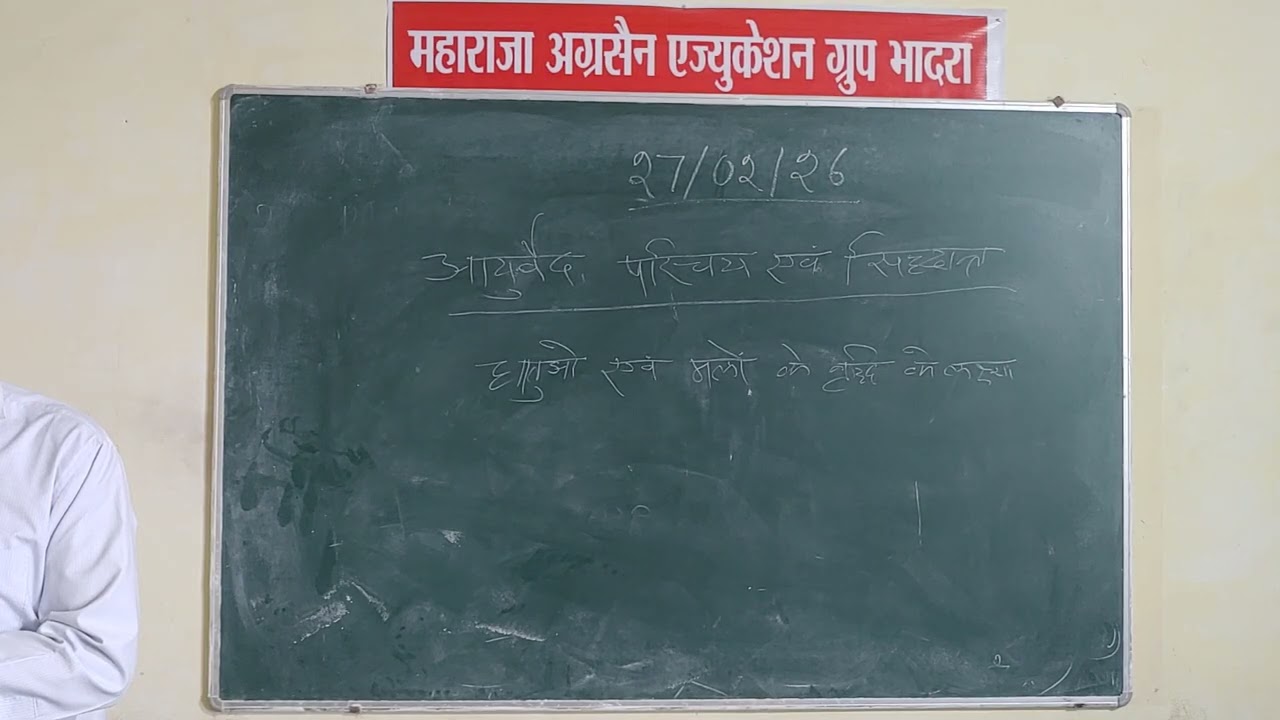 महाराजा अग्रसैन एज्युकेशन ग्रुप भादरा
27/02/26
आयुर्वेद परिचय एवं सिद्धान्त
धातुओ एवं मलों के वृद्धि के लक्षण